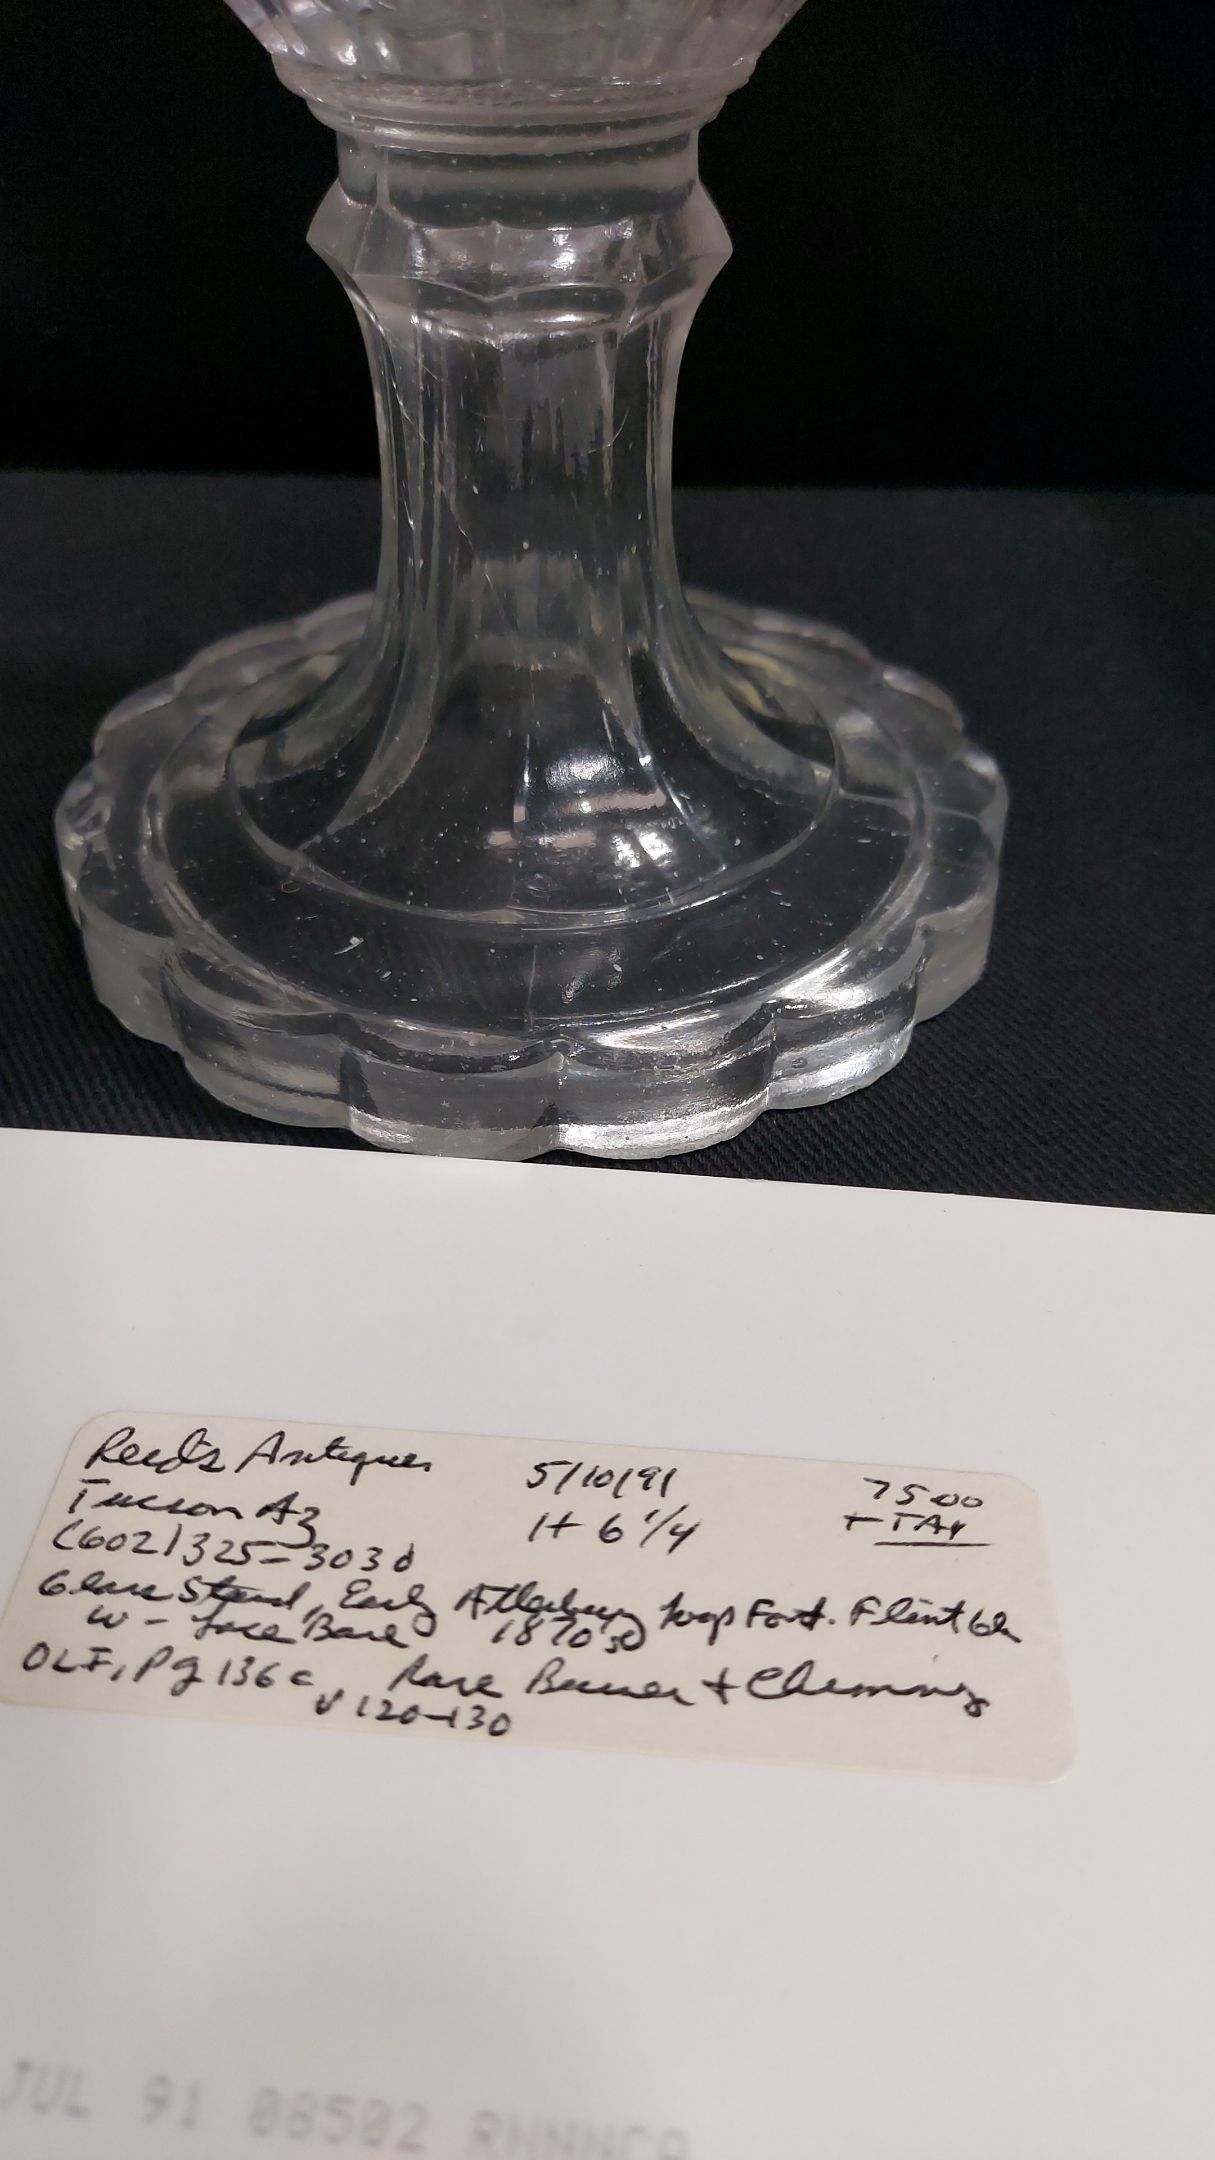 Reed's Antiques 5/10/91 75.00
Tucson Az H 6 1/4 + TAX
(602) 325-3030
Glass Stand, Early Atterbury Loop Font. Flint
w- Base 1870's
OLI, Pg 136 c, Rare Burner + Chimney
v 120-130
JUL 91 08502